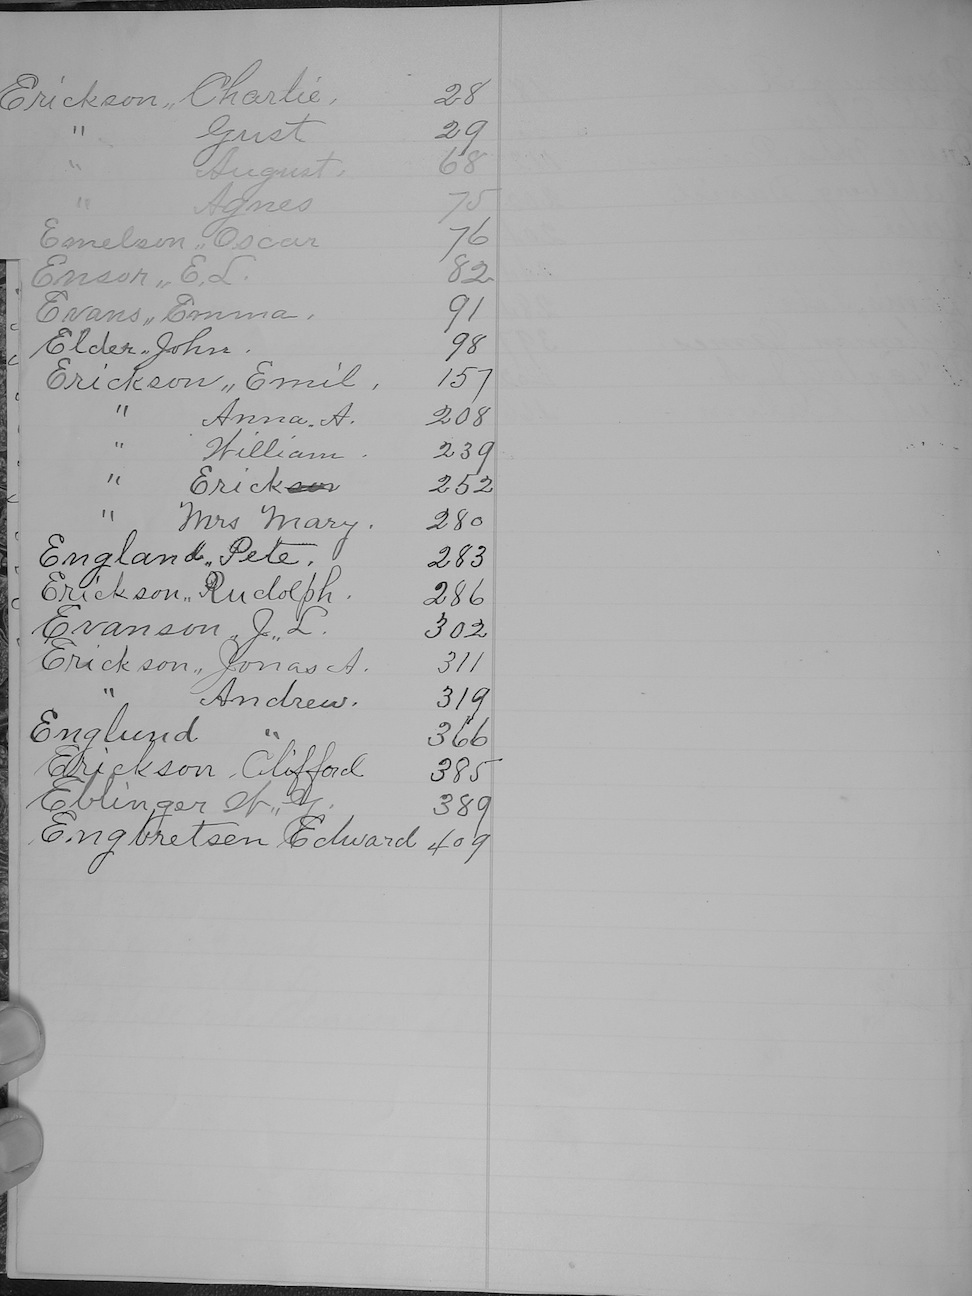 Erickson,, Charlie. 28
" Gust 29
" August. 68
" Agnes 75
Emelson,, Oscar 76
Ensor,, E. L. 82
Evans,, Emma. 91
Elder,, John. 98
Erickson,, Emil. 157
" Anna. A. 208
" William. 239
" Erickson 252
" Mrs Mary. 280
England,, Pete. 283
Erickson,, Rudolph. 286
Evanson,, J,, L. 302
Erickson,, Jonas A. 311
" Andrew. 319
Englund " 366
Erickson, Clifford 385
Eblinger 389
Engbretsen Edward 409